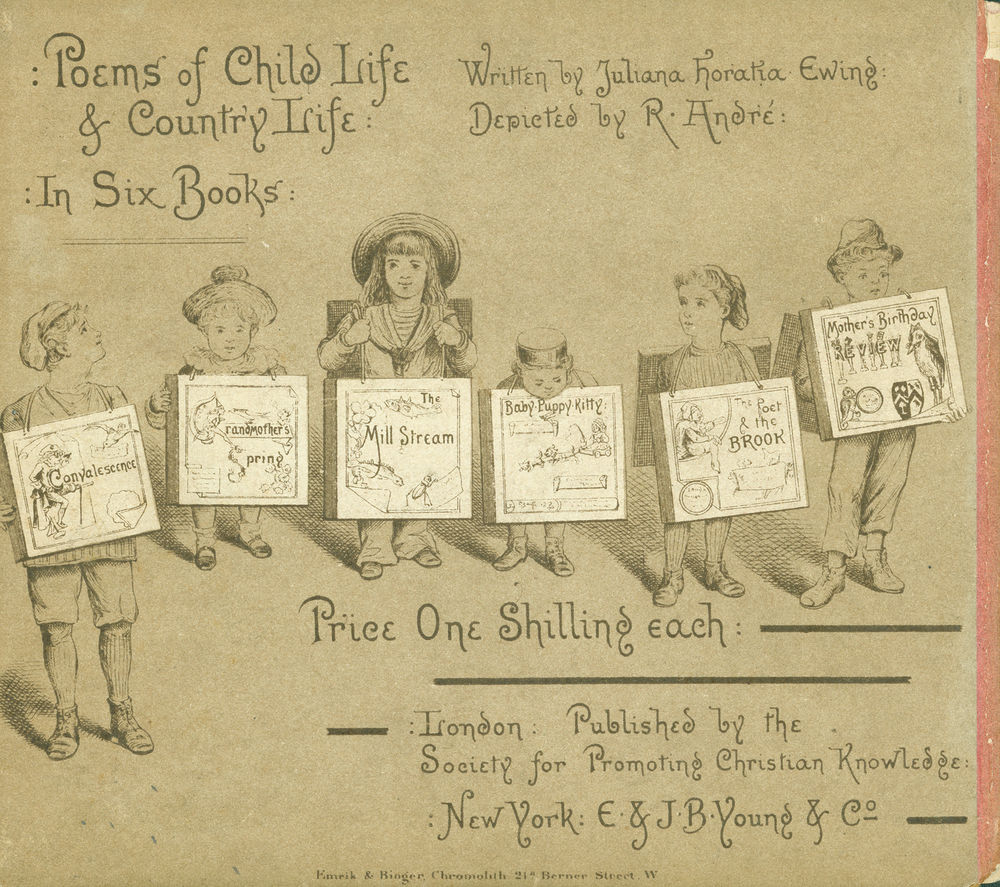 : Poems of Child Life
& Country Life :
Written by Juliana Horatia Ewing :
Depicted by R. André :
: In Six Books :
Convalescence
Grandmother's
Spring
The
Mill Stream
Baby·Puppy·Kitty:
The Poet
& the
BROOK
Mother's Birthday
REVIEW
Price One Shilling each :
: London : Published by the
Society for Promoting Christian Knowledge :
: New York : E. & J. B. Young & Co
Emrik & Binger, Chromolith 21a Berner Street. W